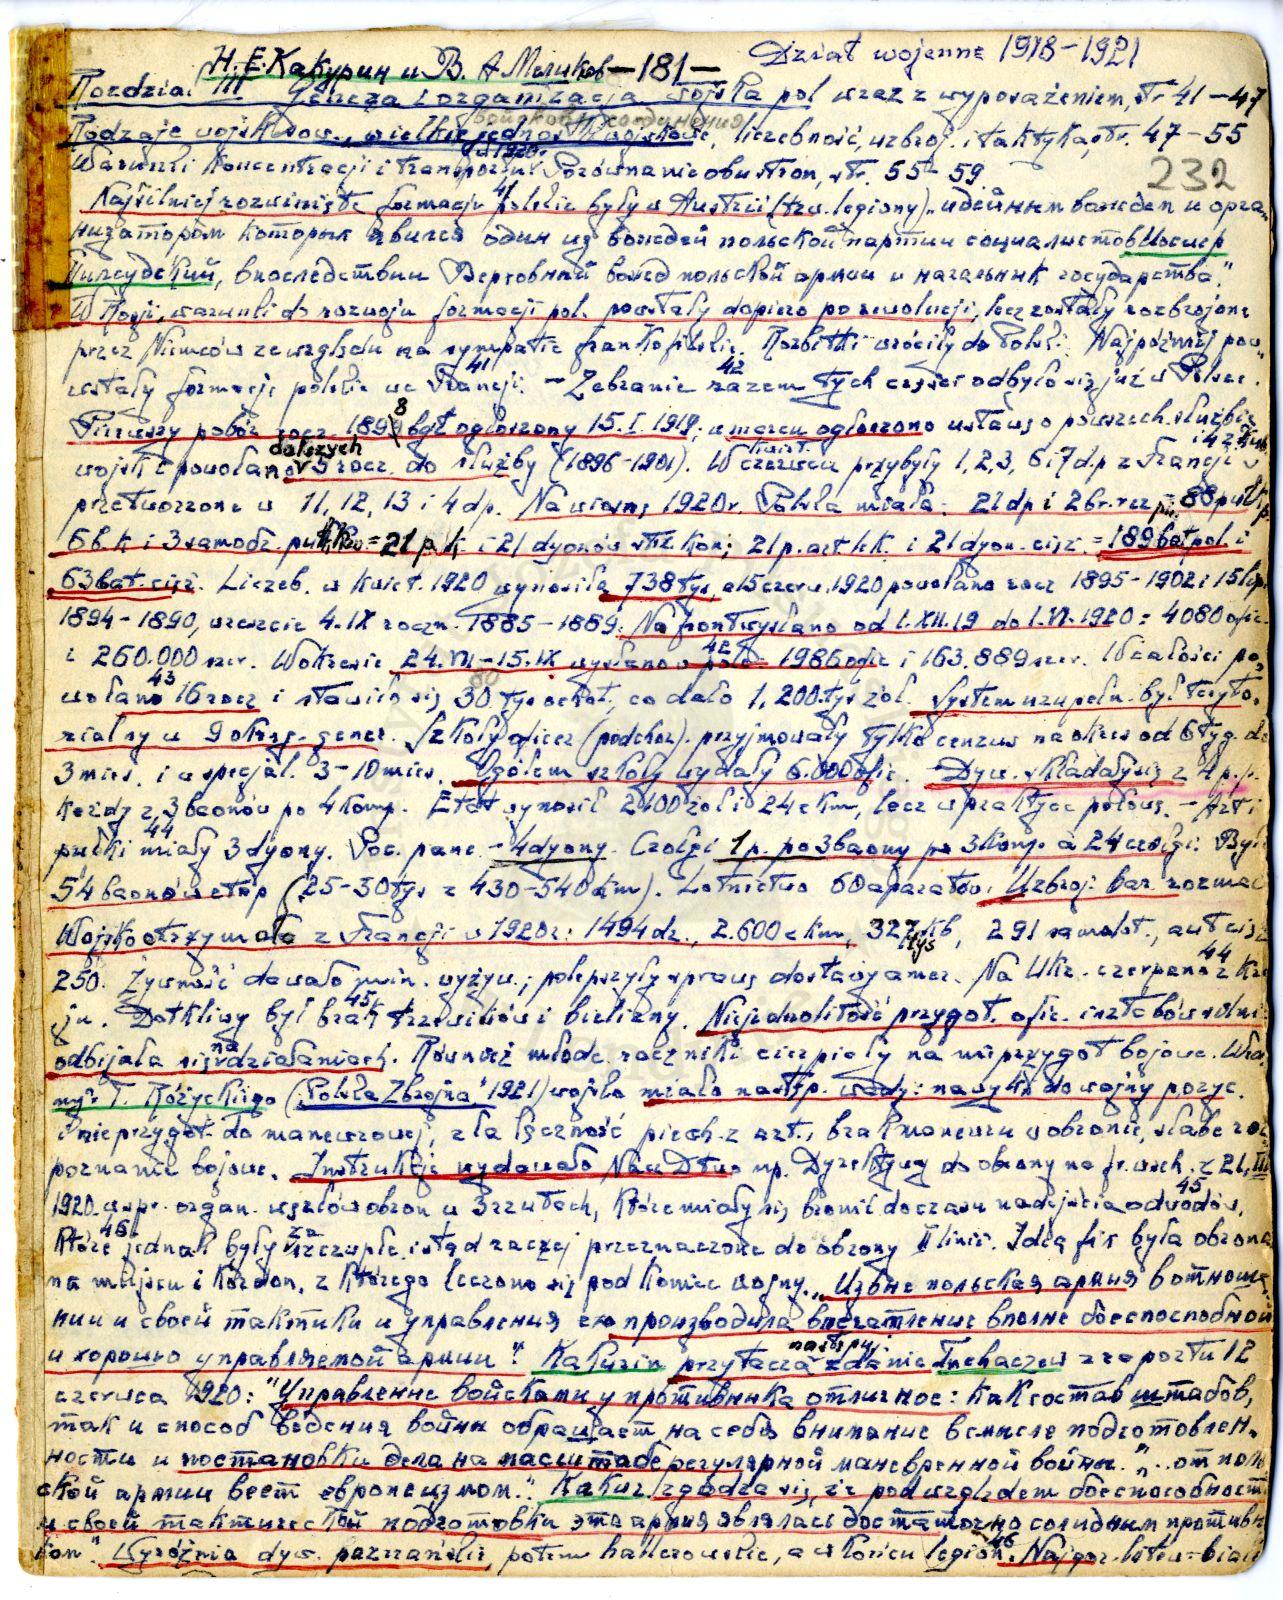 Н. Е. Какурин и В. А Меликов —181— Dział wojenne 1918–1921
Rozdział III Geneza i organizacja wojska pol wraz z wyposażeniem, str 41–47
войсковые соединения
Rodzaje wojsk, wielkie jednostki wojskowe, liczebność, uzbroj. i taktyka, str. 47–55
Warunki koncentracji i transportu. Porównanie obu stron, str. 55–59
232
Najsilniej rozwinięte formacje polskie były w Austrii (tzw. legiony) „идейным вождем и орга-
низатором которых явился один из вождей польской партии социалистов Иосиф
Пилсудский, впоследствии Верховный вождь польской армии и начальник государства".
W Rosji, warunki do rozwoju formacji pol. powstały dopiero po rewolucji, lecz zostały rozbrojone
przez Niemców ze względu na sympatie frankofilskie. Rozbitki wróciły do Polski. Najpóźniej pow-
stały formacje polskie we Francji. 41 — Zebranie razem 42 tych części odbyło się już w Polsce.
Pierwszy pobór rocz. 1898 był ogłoszony 15.I.1919, w marcu ogłoszono ustawę o powszech. służbie
wojsk i powołano dalszych 5 rocz. do służby (1896–1901). W czerwcu przybyły 1, 2, 3, 6 i 7 d.p z Francji
przetworzone w 11, 12, 13 i 4 dp. Na wiosnę 1920 r. Polska miała: 21 dp i 2 br. rez = 88 pułk p.
6 b.k i 3 samodz. pułk. = 21 p k. i 21 dyonów strz kon; 21 p. art lek. i 21 dyon. cięż. = 189 bat pol i
63 bat. cięż. Liczeb. w kwiet. 1920 wynosiła 738 tys, a 15 czerw. 1920 powołano rocz 1895–1902 i 15 lip.
1894–1890, wreszcie 4.IX roczn. 1885–1889. Na front wysłano od 1.XII.19 do 1.VI.1920 = 4080 ofic.
i 260.000 szer. W okresie 24.VII–15.IX wysłano w pole 42 1986 ofic i 163.889 szer. W całości po-
wołano 43 16 rocz i stawiło się 30 tys ochot, co dało 1,200 tys żoł. System uzupełn. był teryto-
rialny w 9 okręg. gener. Szkoły oficer (podchor). przyjmowały tylko cenzus na okres od 6 tyg. do
3 mies. i w specjal. 3–10 mies. Ogółem szkoły wydały 6.000 ofic. — Dyw. składały się z 4 p.p.
każdy z 3 baonów po 4 komp. Etat wynosił 2400 żoł i 24 ckm, lecz w praktyce połowę. — Art i
pułki 44 miały 3 dyony. Poc. panc — 4 dyony. Czołgi 1 p. po 3 baony po 3 komp. a 24 czołgi. Było
54 baonów etap (25–30 tys z 430–540 km). Lotnictwo 60 aparatów. Uzbroj. bar. rozmai
Wojsko otrzymało z Francji w 1920 r: 1494 dz., 2.600 ckm, 327 tys kb, 291 samolot., aut cięż
250. Żywność dawało min. wyżyw.; polepszyły sprawę dostawy amer. Na Ukr. czerpano 44 z kra-
ju. Dotkliwy był brak 45 trzewików i bielizny. Niejednolitość przygot. ofic. i sztabów silnie
odbijała się na działaniach. Również młode roczniki cierpiały na nieprzygot bojowe. Wła-
ny T. Różyckiego („Polska Zbrojna" 1921) wojsko miało następ. wady: nawyki do wojny pozyc.
i nieprzygot. do manewrowej, zła łączność piech. z art., brak manewru w obronie, słabe roz-
poznanie bojowe. Instrukcje wydawało Nacz Dtwo np. Dyrektywy do obrony na fr. wsch. z 21.III
1920. w spr. organ. węzłów obron w 3 rzutach, które miały się bronić do czasu nadejścia odwodów, 45
które 46 jednak były za szczupłe i stąd raczej przeznaczone do obrony II linii. Ideą fix była obrona
na miejscu i kordon, z którego leczono się pod koniec wojny. „Извне польская армия в отноше-
нии и своей тактики и управления ею производила впечатление вполне боеспособной
и хорошо управляемой армии". Kakurin przytacza następuj. zdanie Tuchaczew z raportu 12
czerwca 1920: "Управление войсками у противника отличное: как состав штабов,
так и способ ведения войны обращает на себя внимание в смысле подготовлен-
ности и постановки дела на масштабе регулярной маневренной войны." „..от поль-
ской армии веет европеизмом." Kakur. zgadza się, że pod względem боеспособности
и своей тактической подготовки эта армия являлась достаточно солидным противни-
ком". Wyróżnia dyw. poznańskie, potem hallerowskie, a w końcu legion. 46 Najgor. litew-biało